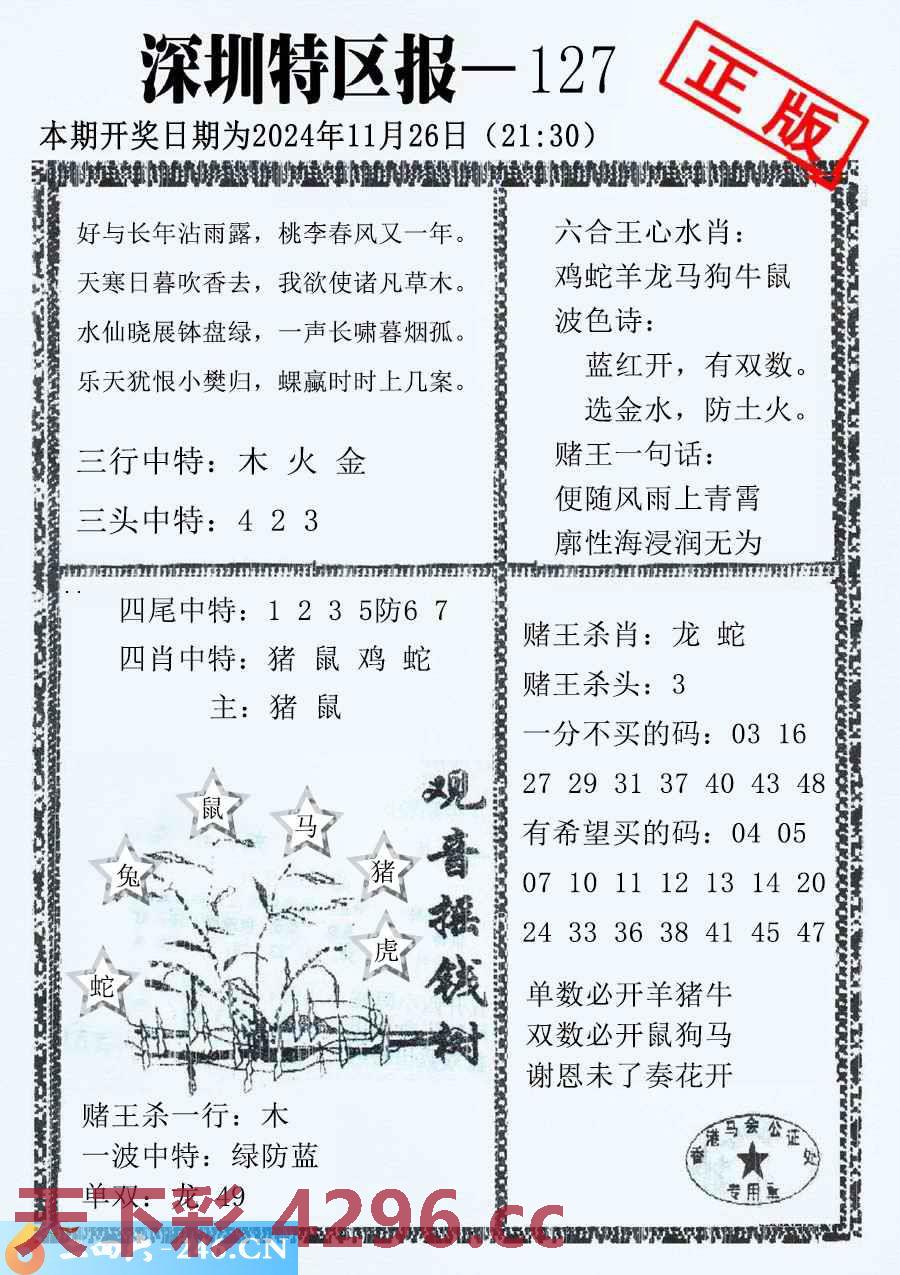 深圳特区报—127
正版
本期开奖日期为2024年11月26日（21:30）
好与长年沾雨露，桃李春风又一年。
天寒日暮吹香去，我欲使诸凡草木。
水仙晓展钵盘绿，一声长啸暮烟孤。
乐天犹恨小樊归，蜾嬴时时上几案。
三行中特：木 火 金
三头中特：4 2 3
六合王心水肖：
鸡蛇羊龙马狗牛鼠
波色诗：
蓝红开，有双数。
选金水，防土火。
赌王一句话：
便随风雨上青霄
廓性海浸润无为
四尾中特：1 2 3 5防6 7
四肖中特：猪 鼠 鸡 蛇
主：猪 鼠
鼠
马
兔
猪
虎
蛇
观音摇钱树
赌王杀一行：木
一波中特：绿防蓝
单双：龙 49
赌王杀肖：龙 蛇
赌王杀头：3
一分不买的码：03 16
27 29 31 37 40 43 48
有希望买的码：04 05
07 10 11 12 13 14 20
24 33 36 38 41 45 47
单数必开羊猪牛
双数必开鼠狗马
谢恩未了奏花开
香港马会公证处
专用章
天下彩 4296.cc
246.CN